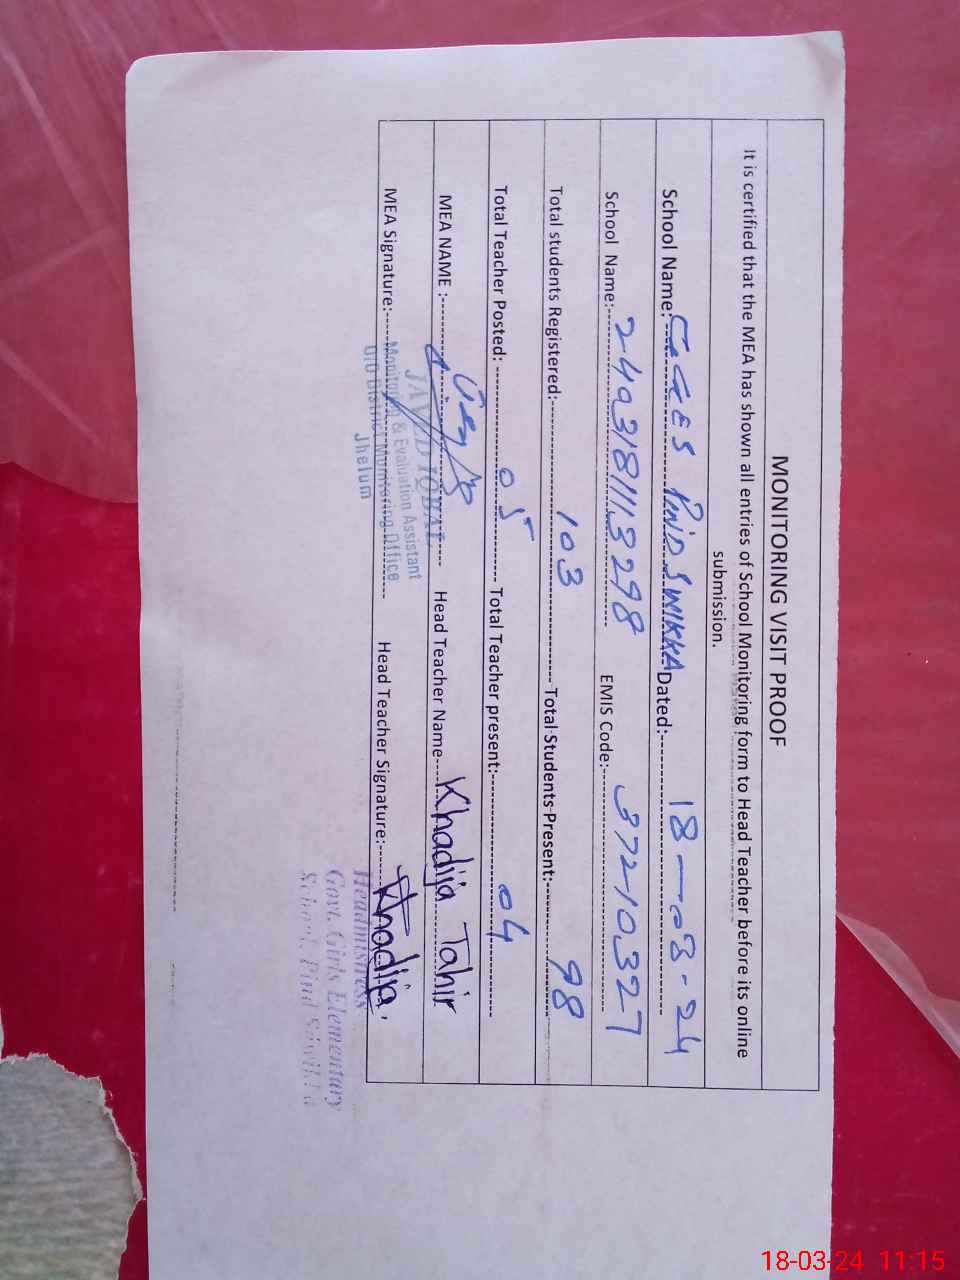 MONITORING VISIT PROOF
It is certified that the MEA has shown all entries of School Monitoring form to Head Teacher before its online
submission.
School Name: GGES PIND SWIKKA Dated: 18-03-24
School Name: 249318113298 EMIS Code: 37210327
Total students Registered: 103 Total Students Present: 98
Total Teacher Posted: 05 Total Teacher present: 04
MEA NAME : Head Teacher Name Khadija Tahir
JAVED IQBAL
Monitoring & Evaluation Assistant
O/O District Monitoring Office
Jhelum
MEA Signature: Head Teacher Signature: Khadija
Headmistress
Govt. Girls Elementary
School, Pind
18-03-24 11:15